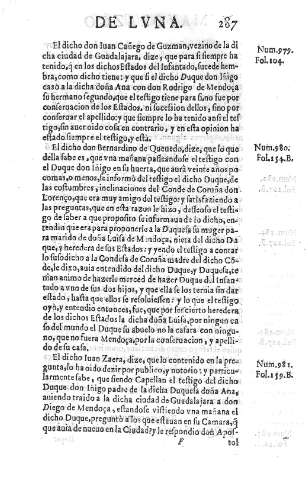 DE LVNA. 287
El dicho don Juan Cañego de Guzman, vezino de la di
cha ciudad de Guadalajara, dize, que para si siempre ha
tenido, q̃ en los dichos Estados del Infantado, sucede hem-
bra, como dicho tiene: y que si el dicho Duque don Iñigo
casò a la dicha doña Ana con don Rodrigo de Mendoça
su hermano segundo, que el testigo tiene para si no fue por
conseruacion de los Estados, ni sucession dellos, sino por
conseruar el apellido: y que siempre lo ha tenido ansi el tes-
tigo, sin auer oido cosa en contrario, y en esta opinion ha
estado siempre el testigo, y està.
Num. 979.
Fol. 104.
El dicho don Bernardino de Quesedo, dize, que lo que
della sabe es, que vna mañana passeandose el testigo con
el Duque don Iñigo en su huerta, que aurà veinte años po
co mas, o menos, se informò del testigo el dicho Duque, de
las costumbres, inclinaciones del Conde de Coruña don
Lorenço, que era muy amigo del testigo: y satisfaziendo a
las preguntas, que en esta razon le hizo, desseoso el testi-
go de saber a que proposito se informaua de lo dicho, en-
tendio que era para proponerle a la Duquesa su muger pa-
ra marido de doña Luisa de Mendoça, nieta del dicho Du-
que, y heredera de sus Estados: y yendo el testigo a contar
lo susodicho a la Condesa de Coruña madre del dicho Cõ-
de, le dixo, auia entendido del dicho Duque, y Duquesa, te
nian animo de hazerle merced de hazer Duque del Infan-
tado a vno de sus dos hijos, y que ella se los ternia sin dar
estado, hasta que ellos se resoluiessen: y lo que el testigo
oyò, y entendio entonces, fue, que por ser cierto heredera
de los dichos Estados la dicha doña Luisa, por ningun ca
so del mundo el Duque su abuelo no la casara con ningu-
no, que no fuera Mendoça, por la conseruacion, y apelli-
do de su casa.
Num. 980.
Fol. 154. B.
El dicho Juan Zaera, dize, que lo contenido en la pre-
gunta, lo ha oido dezir por publico, y notorio: y particu-
larmente sabe, que siendo Capellan el testigo del dicho
Duque don Iñigo padre de la dicha Duquesa doña Ana,
auiendo traido a la dicha ciudad de Guadalajara a don
Diego de Mendoça, estandose vistiendo vna mañana el
dicho Duque, preguntò a los que estauan en su Camara, q̃
que auia de nueuo en la Ciudad? y le respondio don Apos-
Num. 981.
Fol. 159. B.
tol